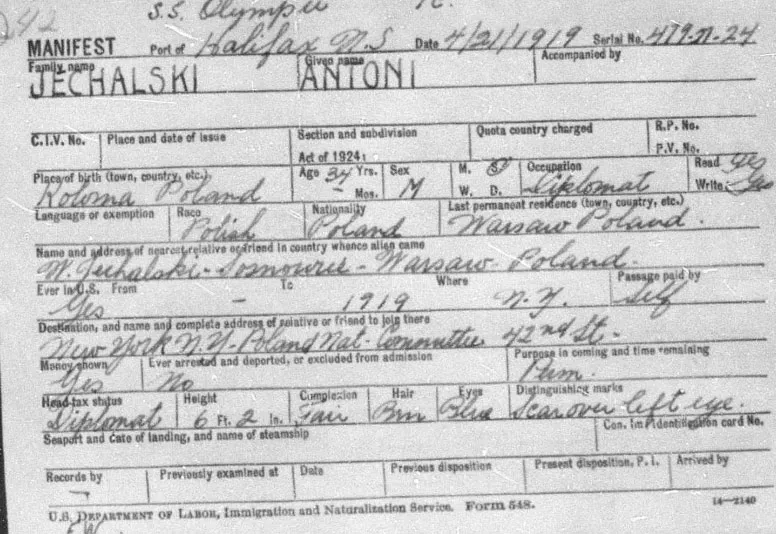 242 S.S. Olympic
MANIFEST Port of Halifax N.S Date 4/21/1919 Serial No. 479-31-24
Family name Given name Accompanied by
JECHALSKI ANTONI
C.I.V. No. Place and date of issue Section and subdivision Quota country charged R.P. No.
Act of 1924: P.V. No.
Place of birth (town, country, etc.) Age 34 Yrs. Sex M. S Occupation Read yes
Koloma Poland – Mos. M W. D. Diplomat Write yes
Language or exemption Race Nationality Last permanent residence (town, country, etc.)
Polish Poland Warsaw Poland.
Name and address of nearest relative or friend in country whence alien came
W. Jechalski - - Warsaw - Poland.
Ever in U.S. From To Where Passage paid by
Yes – 1919 N.Y. Self
Destination, and name and complete address of relative or friend to join there
New York N.Y - Poland Nat- Committee 42nd St -
Money shown Ever arrested and deported, or excluded from admission Purpose in coming and time remaining
Yes No Perm.
Head-tax status Height Complexion Hair Eyes Distinguishing marks
Diplomat 6 Ft. 2 In. Fair Brn Blue Scar over left eye.
Seaport and date of landing, and name of steamship Con. Im Identification card No.
Records by Previously examined at Date Previous disposition Present disposition, P.I. Arrived by
U.S. DEPARTMENT OF LABOR, Immigration and Naturalization Service. Form 548. 14—2140